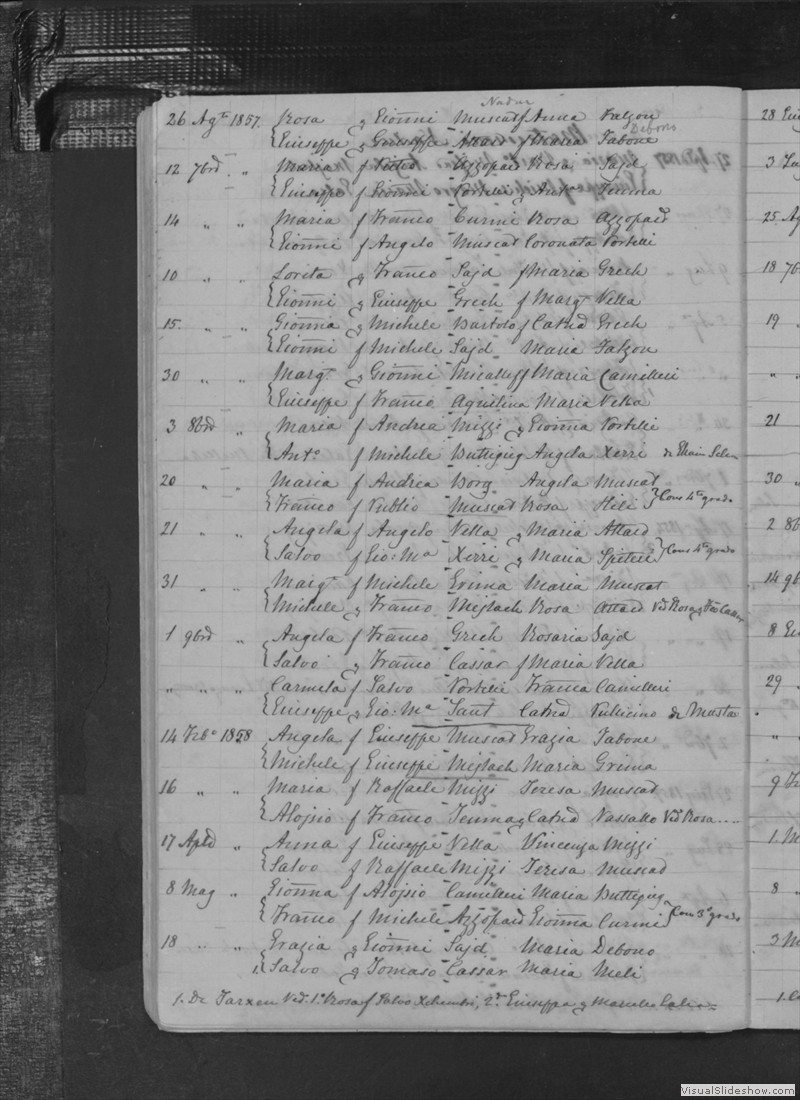 Nadur
26 Agto 1857. Rosa f Gionni Muscat f Anna Falzon
Debono
Giuseppe f Giuseppe Attard f Maria Tabone
12 7bre " Maria f Azzopardi Rosa Sajd
Giuseppe f Gionni Portelli f
14 " " Maria f Franco Curmi Rosa Azzopardi
Gionni f Angelo Muscat Coronata Portelli
10 " " Lorita f Franco Sajd f Maria Grech
Gionni f Giuseppe Grech f Margta Vella
15 " " Gionna f Michele Bartolo f Catrd Grech
Gionni f Michele Sajd Maria Falzon
30 " " Margta f Gionni Micallef f Maria Camilleri
Giuseppe f Franco Aquilina Maria Vella
3 8bre " Maria f Andrea Mizzi f Gionna Portelli
Anto f Michele Buttigieg Angela Xerri
20 " " Maria f Andrea Borg Angela Muscat
Franco f Publio Muscat Rosa Hili Cons 4to grado
21 " " Angela f Angelo Vella f Maria Attard
Salvo f Gio: Ma Xerri f Maria Spiteri Cons 4to grado
31 " " Margta f Michele Grima Maria Muscat
Michele f Franco Mejlach Rosa Attard
1 9bre " Angela f Franco Grech Rosaria Sajd
Salvo f Franco Cassar f Maria Vella
" " " Carmela f Salvo Portelli Franca Camilleri
Giuseppe f Gio: Ma Sant Catrd Pullicino de Musta
14 Febo 1858 Angela f Giuseppe Muscat Grazia Tabone
Michele f Giuseppe Mejlach Maria Grima
16 " " Maria f Raffaele Mizzi Teresa Muscat
Alojsio f Franco f Catrd Vassallo Vedo Rosa....
17 Aple " Anna f Giuseppe Vella Vincenza Mizzi
Salvo f Raffaele Mizzi Teresa Muscat
8 Mag " Gionna f Alojsio Camilleri Maria Buttigieg
Franco f Michele Azzopardi Gionna Curmi Cons 3o grado
18 " " Grazia f Gionni Sajd Maria Debono
1. Salvo f Tomaso Cassar Maria Meli
1. De Tarxen Ved. 1o Rosa f Salvo Xchembri, 2o Giuseppa f
28
3
25 Ag
18 7b
19
" "
21
30 "
2 8b
14 9b
8
29
" "
9
1. M
8 "
3 M
1.
VisualSlideshow.com